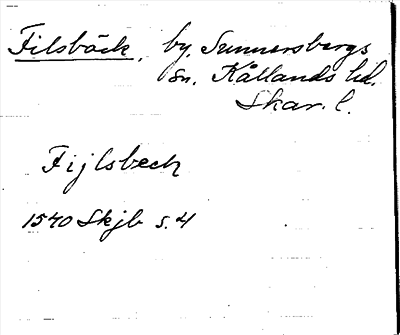 Filsbäck, by, Sunnersbergs
sn. Kållands hd.
Skar. l.
Fijlsbeck
1540 Skjb s. 4